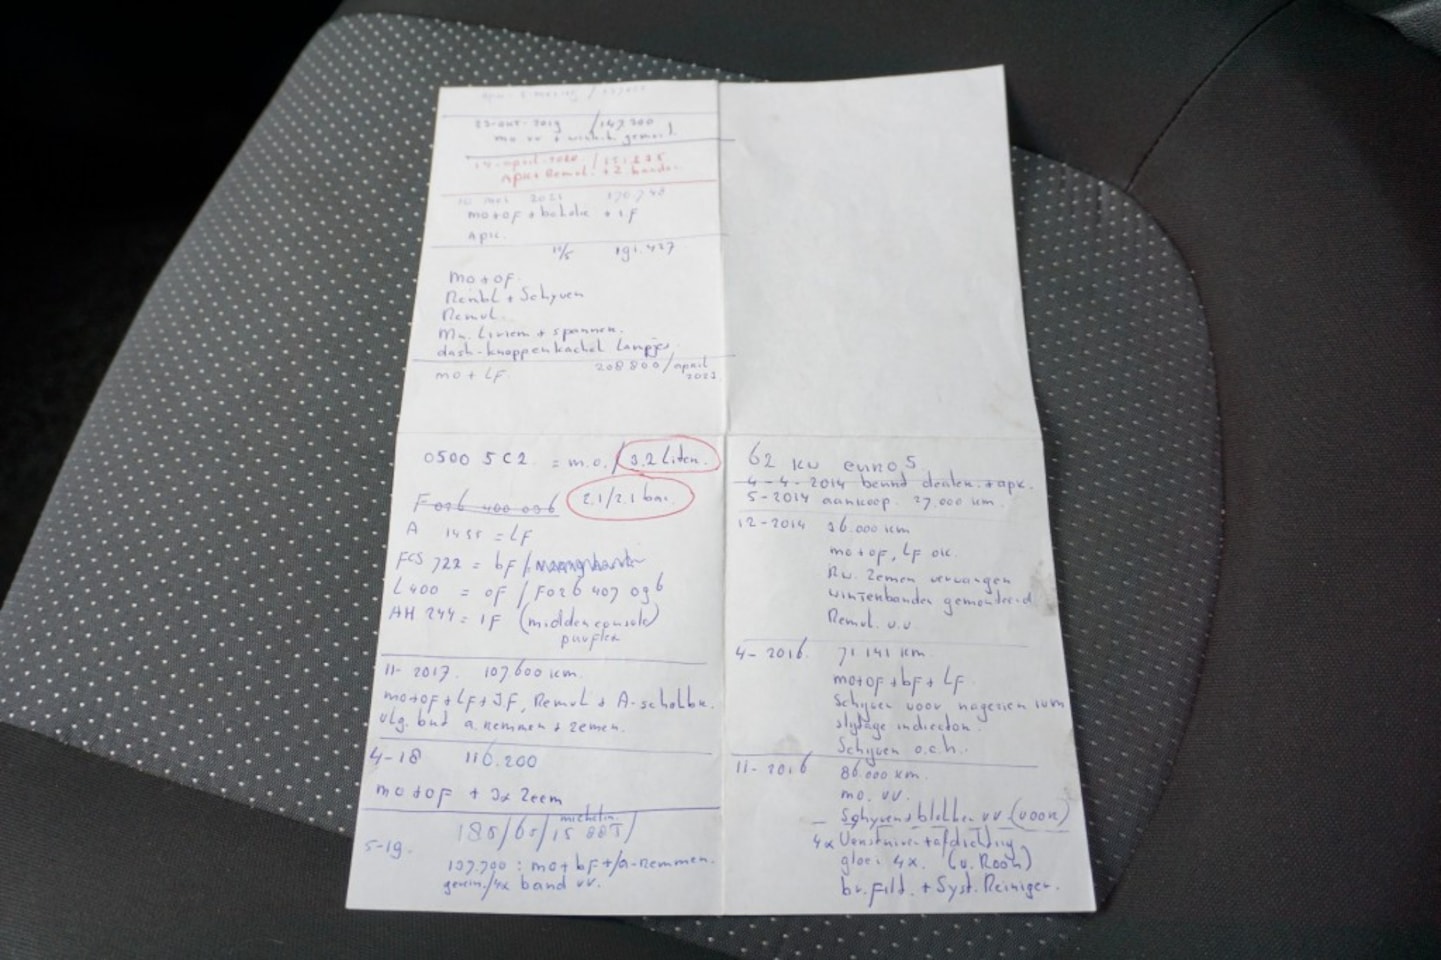 23-okt-2019 / 147.200
mo vv +
14-april-2020
Apk + Remvl. + 2 banden
10 mei 2021 170.748
mo+of + + IF
Apk.
10/5 191.427
mo+of.
Remvl.
+ spannen.
dash-knoppen kachel lampjes
208 800 / april
mo + LF. 2023
0500 5C2 = m.o. / 3.2 Liter.
F 026 400 096 2.1/2.1 bar.
A 1455 = LF
FCS 722 = bf /
L400 = of / F026 407 096
AH 244 = IF (middenconsole)
11-2017. 107.600 km.
mo+of+Lf+IF, Remvl + A-schokbr.
a. remmen + zemen.
4-18 116.200
mo+of + 3x Zeem
michelin.
185/65/15 88T/
5-19.
137.700 : mo+bf+/a-remmen.
gerein./4x band vv.
62 kw euro 5
4-4-2014 beurt dealer + apk.
5-2014 aankoop. 27.000 km.
12-2014 36.000 km
mo+of, LF ok.
Rw. Zemen vervangen
winterbanden gemonteerd
Remvl. v.v.
4-2016. 71.141 km.
mo+of+bf+LF.
Schyven voor nagezien ivm
slytage indicator.
Schyven o.c.h.
11-2016 86.000 km.
mo. vv.
Schyven + blokken vv (voor)
4x Verstuiver + afdichting
gloei 4x. (v. Roon)
br. filt. + Syst. Reiniger.